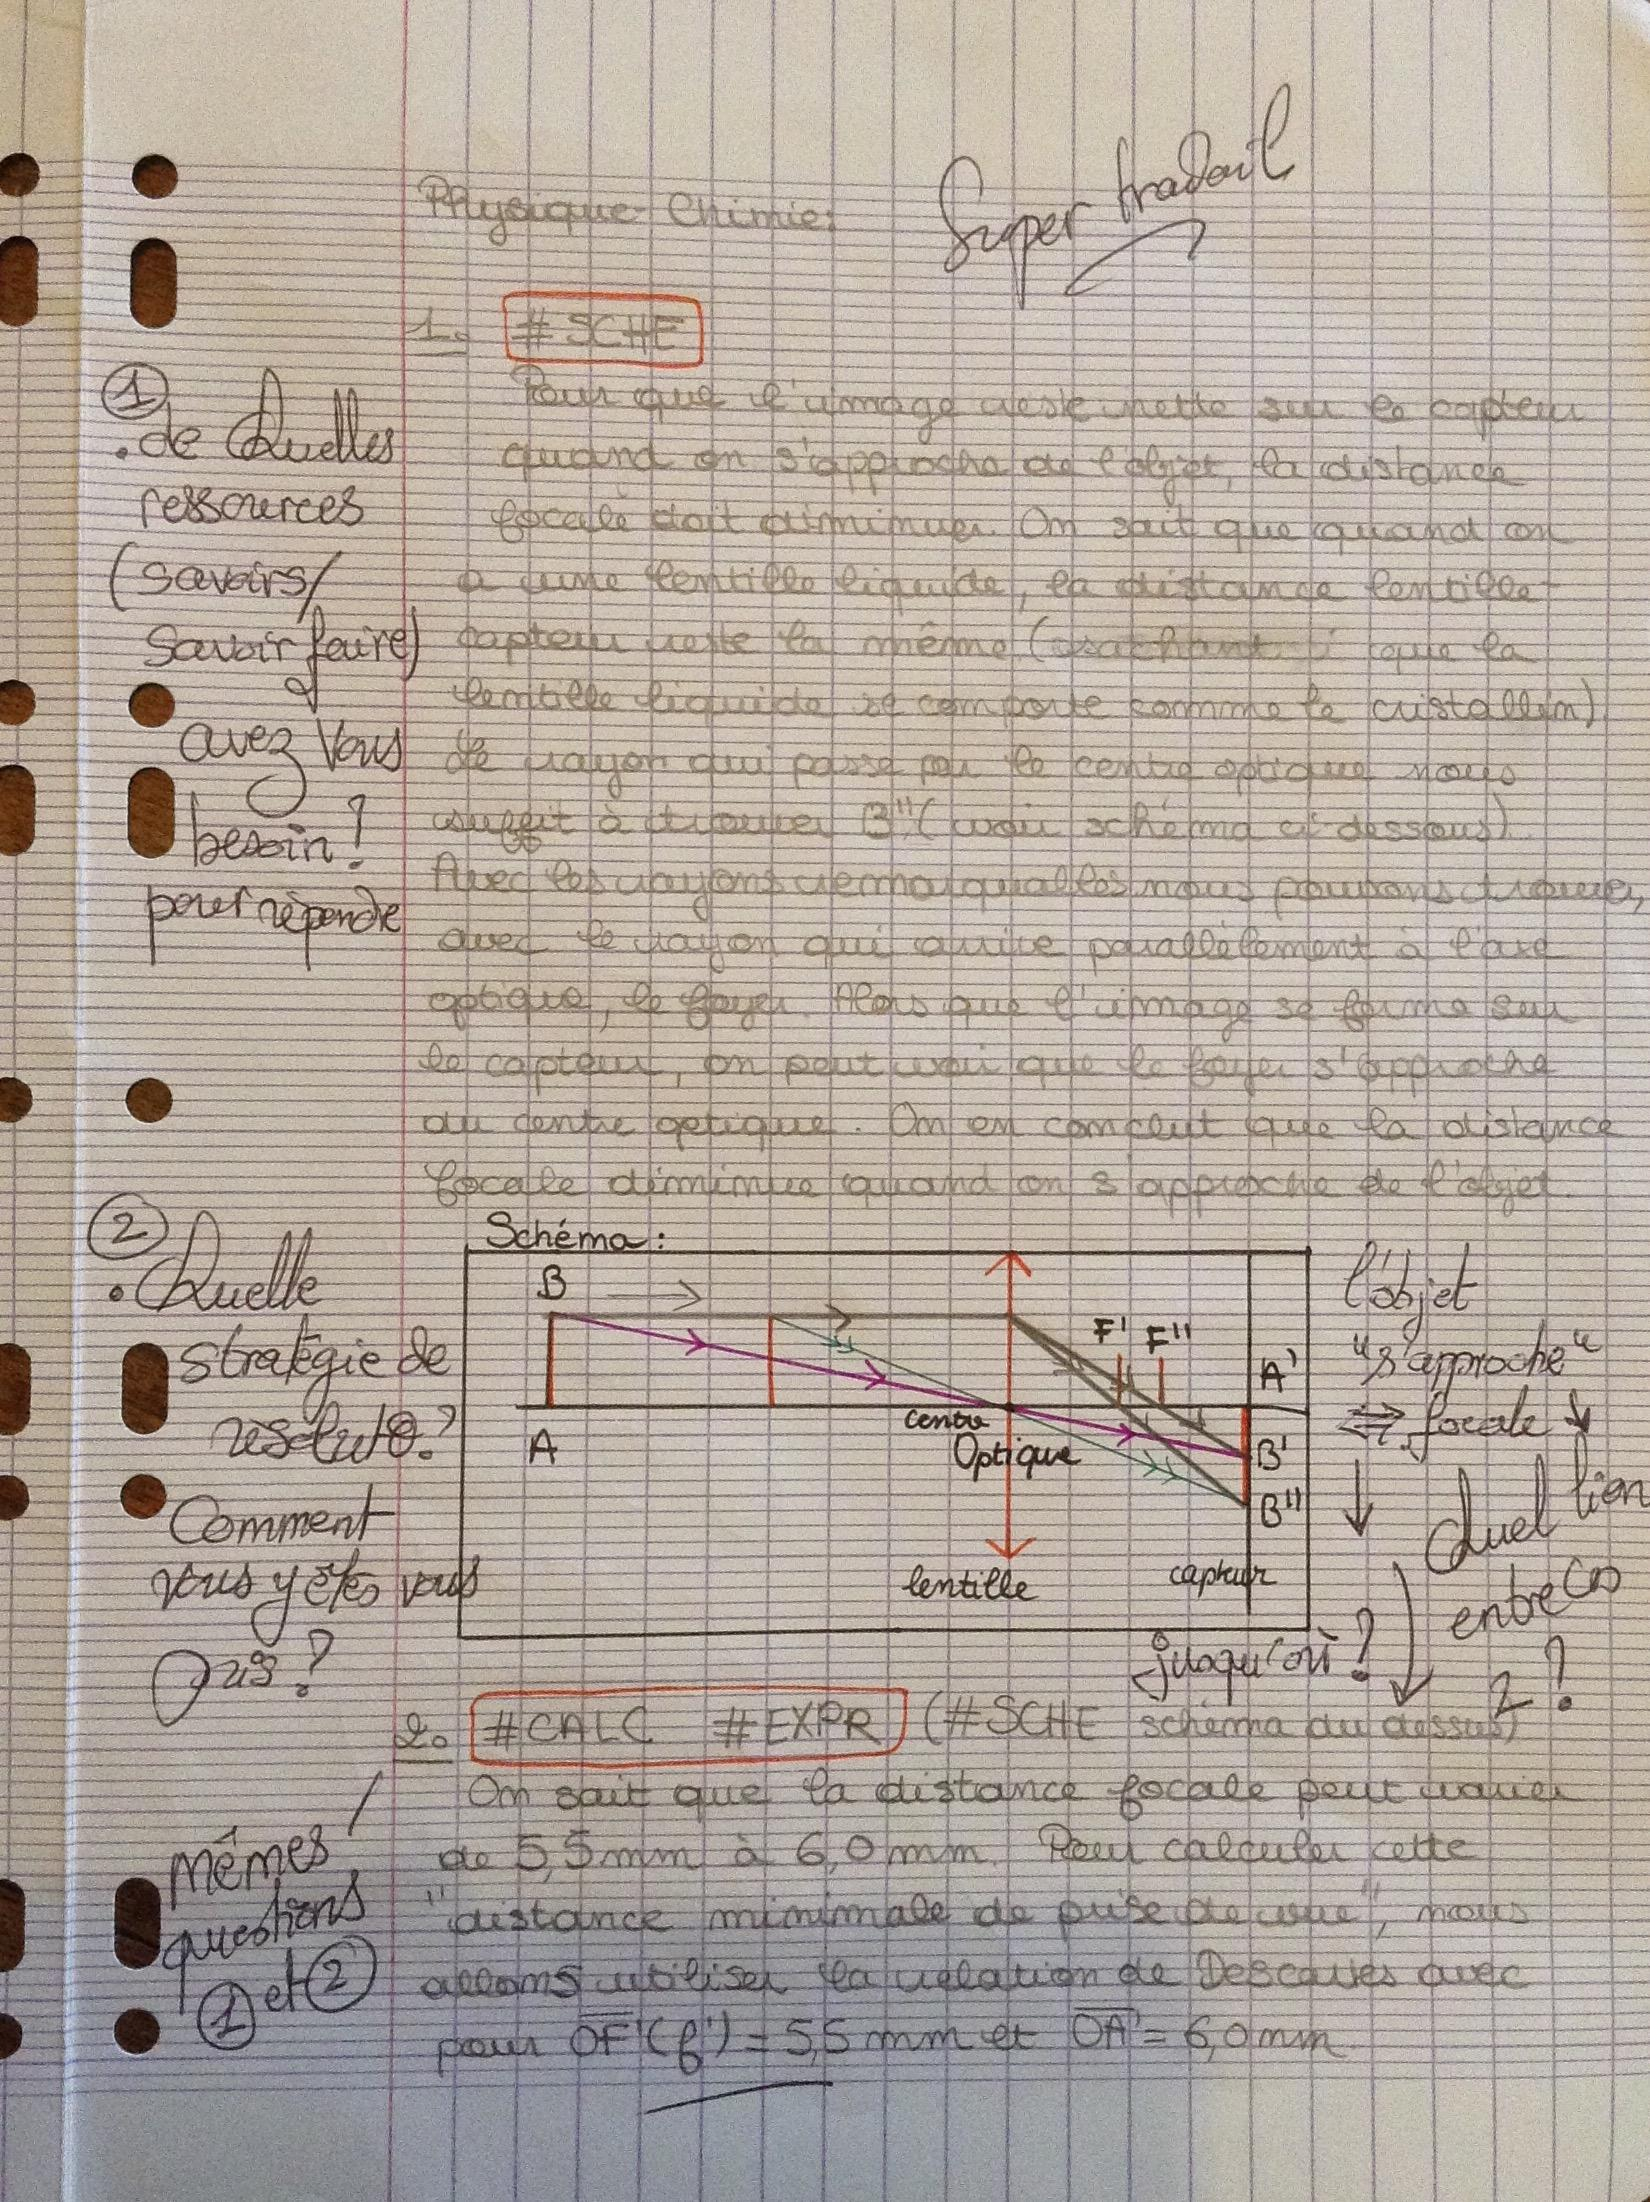 Super travail
Physique-Chimie:
1. #SCHE
Pour que l'image reste nette sur le capteur
quand on s'approche de l'objet, la distance
focale doit diminuer. On sait que quand on
a une lentille liquide, la distance lentille-
capteur reste la même (sachant que la
lentille liquide se comporte comme le cristallin)
Le rayon qui passe par le centre optique nous
suffit à trouver B" (voir schéma ci-dessous).
Avec les rayons remarquables nous pouvons trouver,
avec le rayon qui arrive parallèlement à l'axe
optique, le foyer. Alors que l'image se forme sur
le capteur, on peut voir que le foyer s'approche
du centre optique. On en conclut que la distance
focale diminue quand on s'approche de l'objet.
①
. de Quelles
ressources
(savoirs/
savoir faire)
avez vous
besoin?
pour répondre
②
. Quelle
stratégie de
résolut°?
Comment
vous y êtes vous
pris?
Schéma:
B
F' F"
A'
A
centre
Optique
B'
B"
lentille
capteur
l'objet
"s'approche"
⇔ focale ↓
↓ Quel lien
entre ces
2?
jusqu'où?
2. #CALC #EXPR (#SCHE schéma du dessus)
On sait que la distance focale peut varier
de 5,5mm à 6,0mm. Pour calculer cette
"distance minimale de prise de vue", nous
allons utiliser la relation de Descartes avec
pour OF'(f') = 5,5 mm et OA' = 6,0mm
mêmes
questions
① et ②